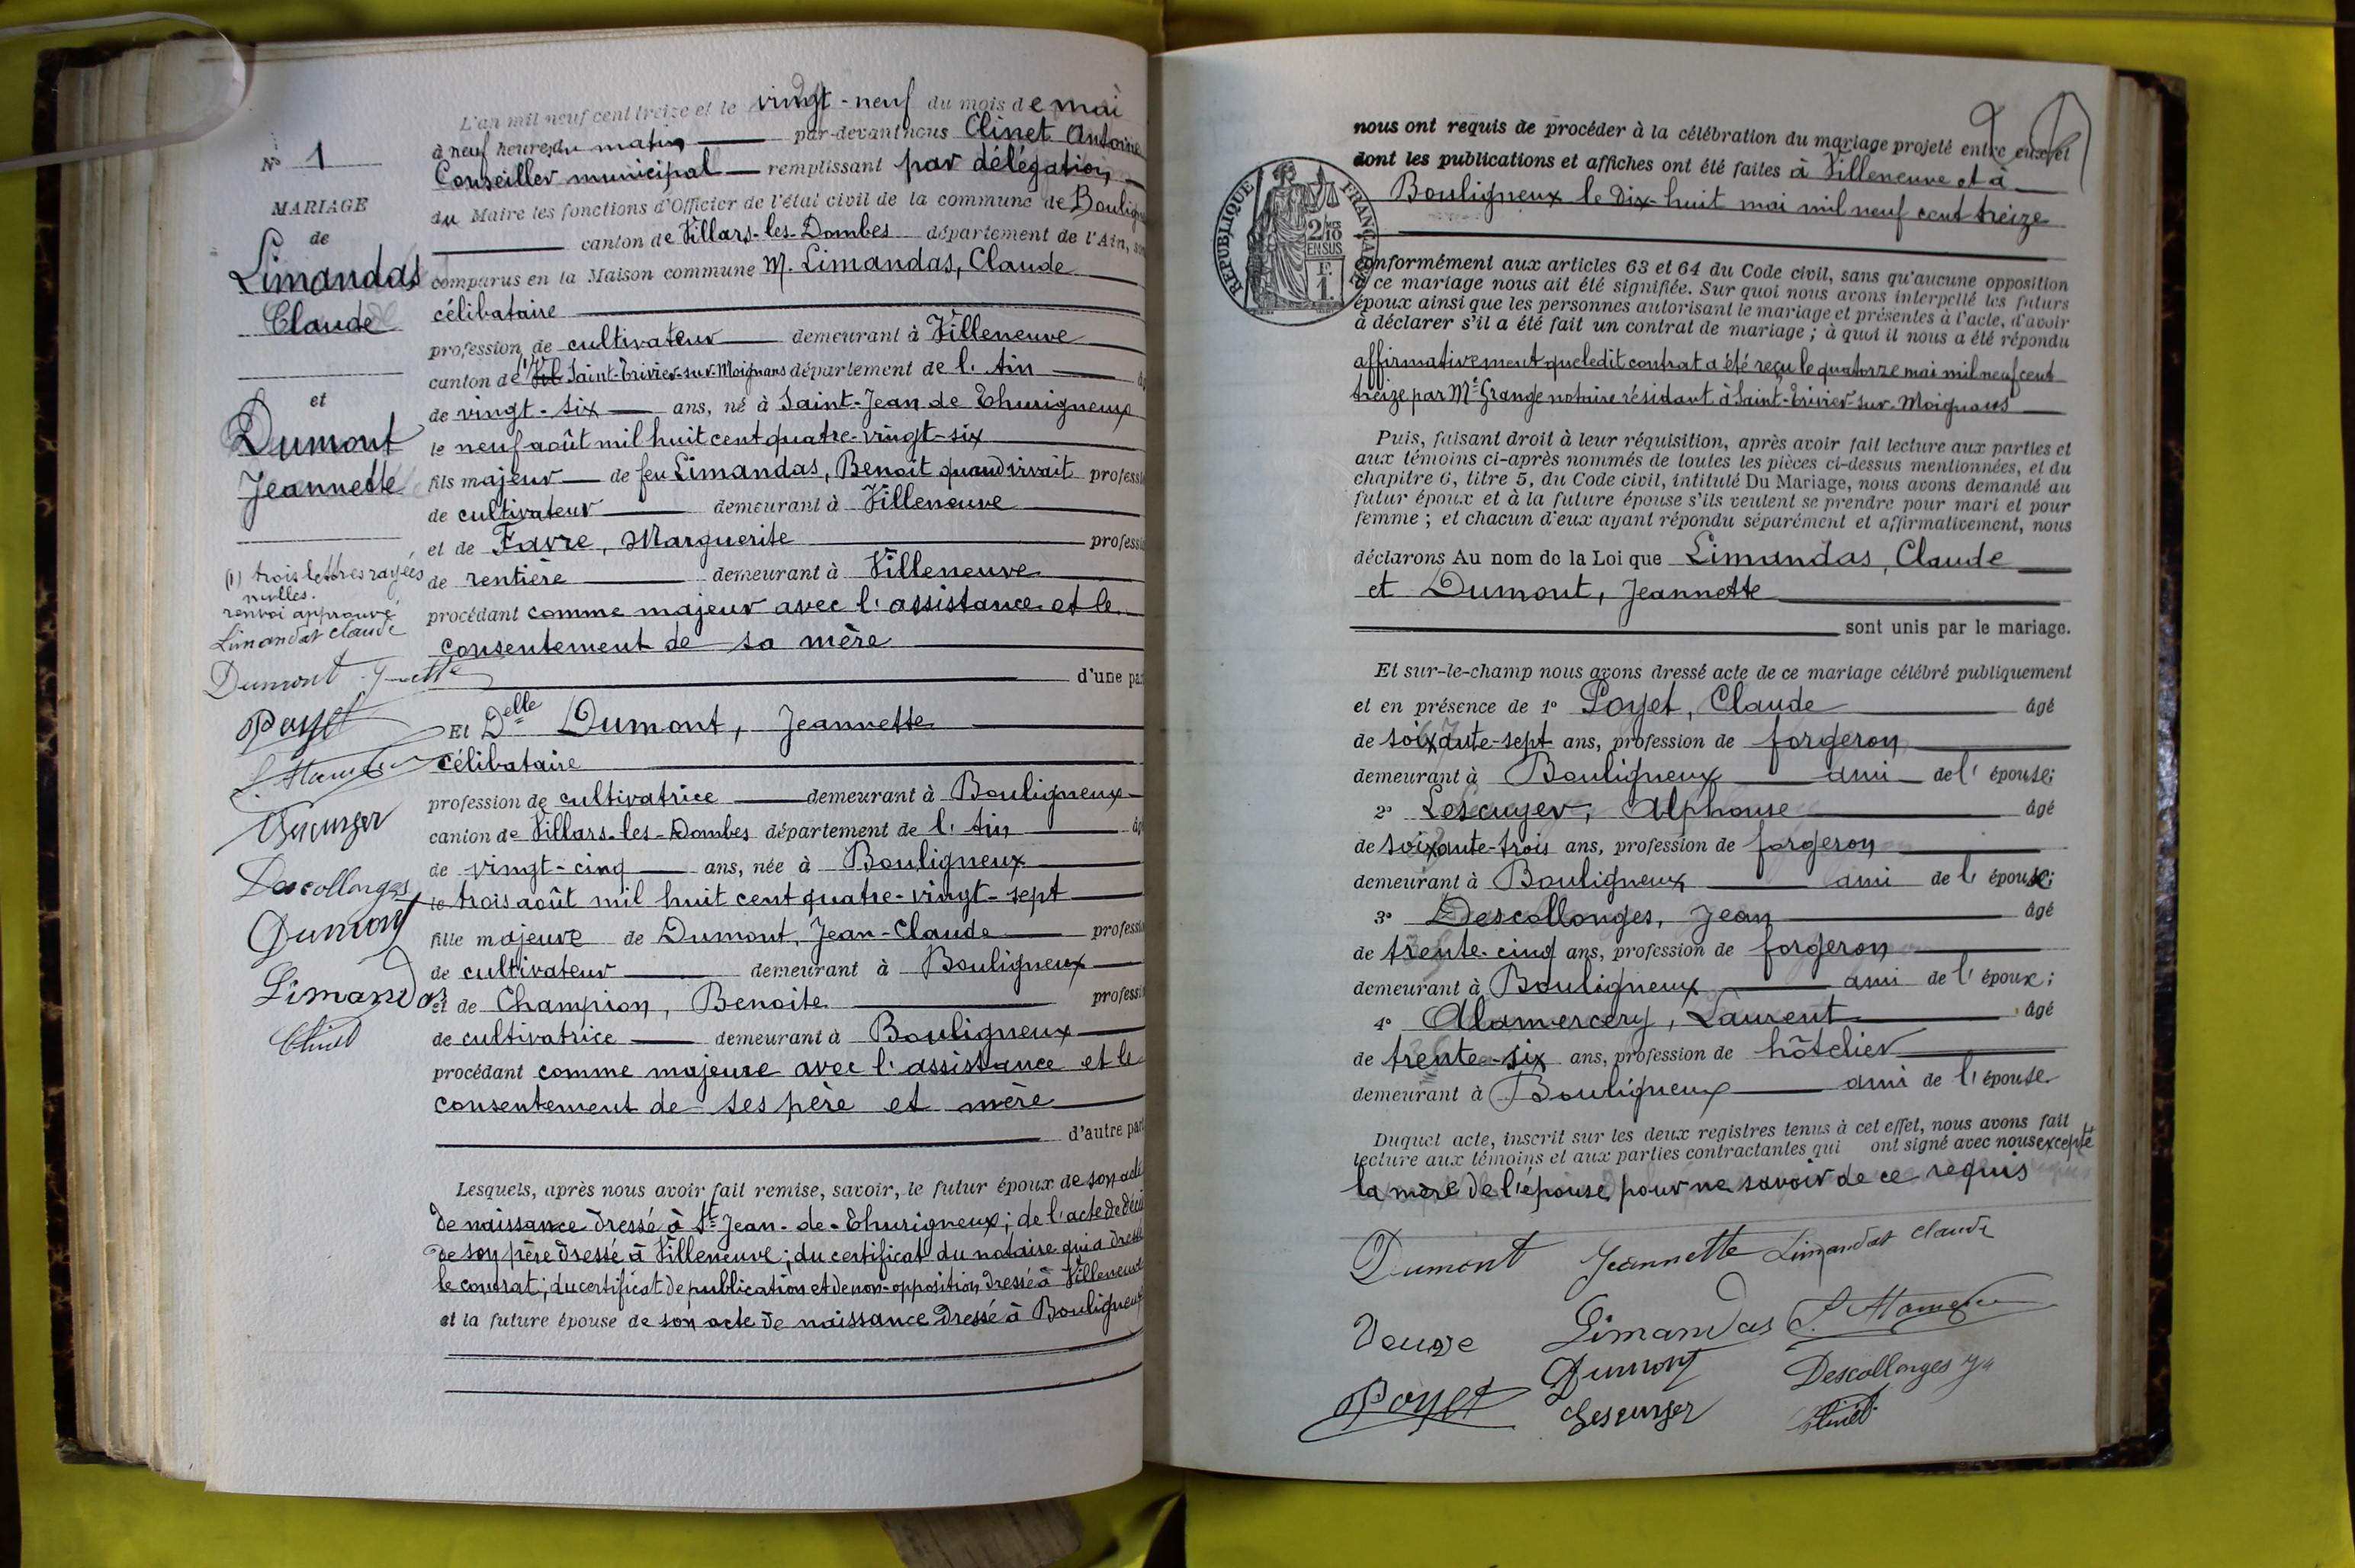 N° 1
MARIAGE
de
Limandas
Claude
et
Dumont
Jeannette
(1) trois lettres rayées
nulles.
renvoi approuvé
Limandas Claude
Dumont Jnette
Poyet
Descollonges
Dumont
Limandas
Clinet
L'an mil neuf cent treize et le vingt-neuf du mois de mai
à neuf heures du matin par-devant nous Clinet Antoine
Conseiller municipal remplissant par délégation
du Maire les fonctions d'Officier de l'état civil de la commune de Bouligneux
canton de Villars-les-Dombes département de l'Ain, sont
comparus en la Maison commune M. Limandas, Claude
célibataire
profession de cultivateur demeurant à Villeneuve
canton de (1) Vil Saint-Trivier-sur-Moignans département de l'Ain âgé
de vingt-six ans, né à Saint-Jean de Thurigneux
le neuf août mil huit cent quatre-vingt-six
fils majeur de feu Limandas, Benoit quand vivait profession
de cultivateur demeurant à Villeneuve
et de Favre, Marguerite profession
de rentière demeurant à Villeneuve
procédant comme majeur avec l'assistance et le
consentement de sa mère
d'une part
Et Delle Dumont, Jeannette
célibataire
profession de cultivatrice demeurant à Bouligneux
canton de Villars-les-Dombes département de l'Ain âgée
de vingt-cinq ans, née à Bouligneux
le trois août mil huit cent quatre-vingt-sept
fille majeure de Dumont, Jean-Claude profession
de cultivateur demeurant à Bouligneux
et de Champion, Benoite profession
de cultivatrice demeurant à Bouligneux
procédant comme majeure avec l'assistance et le
consentement de ses père et mère
d'autre part
Lesquels, après nous avoir fait remise, savoir, le futur époux de son acte
de naissance dressé à St Jean-de-Thurigneux; de l'acte de décès
de son père dressé à Villeneuve; du certificat du notaire qui a dressé
le contrat; du certificat de publication et de non-opposition dressé à Villeneuve
et la future épouse de son acte de naissance dressé à Bouligneux
2
nous ont requis de procéder à la célébration du mariage projeté entre eux et
dont les publications et affiches ont été faites à Villeneuve et à
Bouligneux le dix-huit mai mil neuf cent treize
RÉPUBLIQUE FRANÇAISE
2/10
EN SUS
F.
1.
conformément aux articles 63 et 64 du Code civil, sans qu'aucune opposition
à ce mariage nous ait été signifiée. Sur quoi nous avons interpellé les futurs
époux ainsi que les personnes autorisant le mariage et présentes à l'acte, d'avoir
à déclarer s'il a été fait un contrat de mariage ; à quoi il nous a été répondu
affirmativement que ledit contrat a été reçu le quatorze mai mil neuf cent
treize par Me Grange notaire résidant à Saint-Trivier-sur-Moignans
Puis, faisant droit à leur réquisition, après avoir fait lecture aux parties et
aux témoins ci-après nommés de toutes les pièces ci-dessus mentionnées, et du
chapitre 6, titre 5, du Code civil, intitulé Du Mariage, nous avons demandé au
futur époux et à la future épouse s'ils veulent se prendre pour mari et pour
femme ; et chacun d'eux ayant répondu séparément et affirmativement, nous
déclarons Au nom de la Loi que Limandas, Claude
et Dumont, Jeannette
sont unis par le mariage.
Et sur-le-champ nous avons dressé acte de ce mariage célébré publiquement
et en présence de 1° Poyet, Claude âgé
de soixante-sept ans, profession de forgeron
demeurant à Bouligneux ami de l'épouse;
2° Lescuyer, Alphonse âgé
de soixante-trois ans, profession de forgeron
demeurant à Bouligneux ami de l'épouse;
3° Descollonges, Jean âgé
de trente-cinq ans, profession de forgeron
demeurant à Bouligneux ami de l'époux;
4° Alamercery, Laurent âgé
de trente-six ans, profession de hôtelier
demeurant à Bouligneux ami de l'épouse
Duquel acte, inscrit sur les deux registres tenus à cet effet, nous avons fait
lecture aux témoins et aux parties contractantes qui ont signé avec nous excepté
la mère de l'épouse pour ne savoir de ce requis
Dumont Jeannette Limandas Claude
Veuve Limandas
Dumont Descollonges
Poyet Lescuyer Clinet